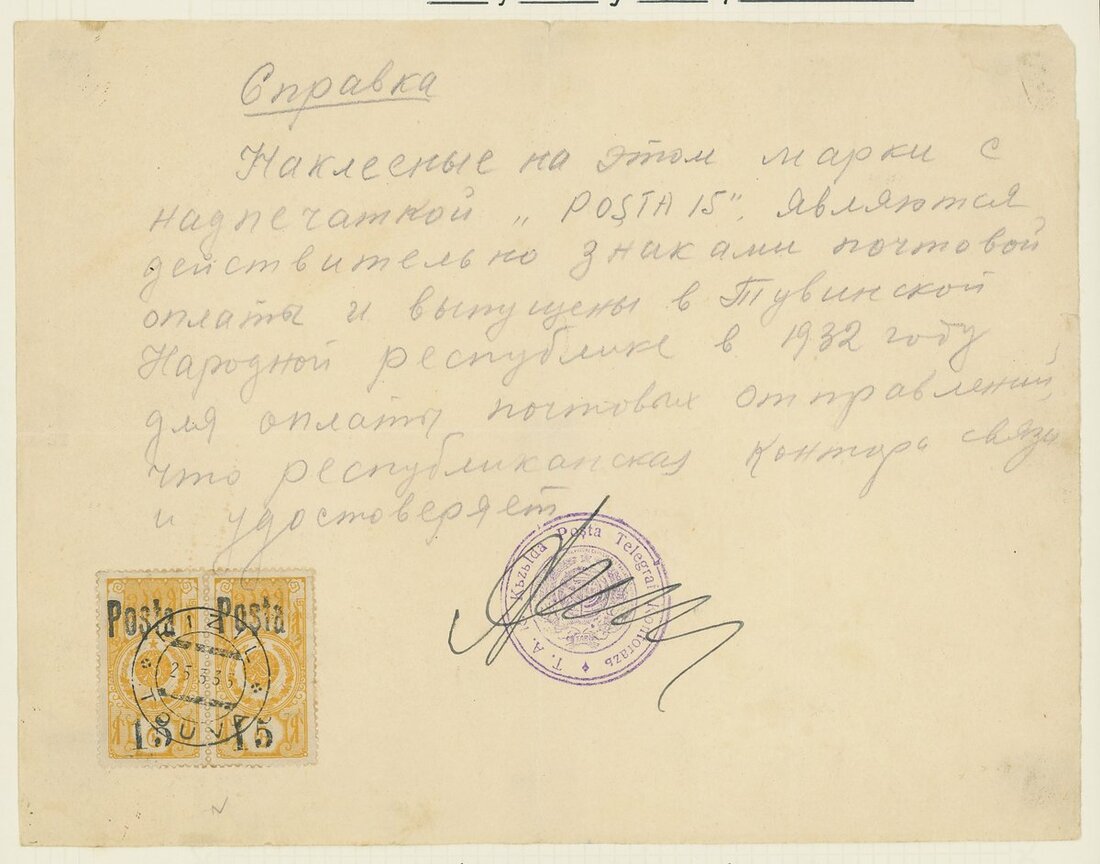 Справка
Наклесные на этом марки с
надпечаткой „POŞTA 15", являются
действительно знаками почтовой
оплаты и выпущены в Тувинской
Народной республике в 1932 году
для оплаты почтовых отправлений,
что республиканская контора связи
и удостоверяет
T. A. R. Kьzьlda Poşta Telegraf Kontorazь
Posta Posta
KIZIL
25.3.35
TOUVA
15 15